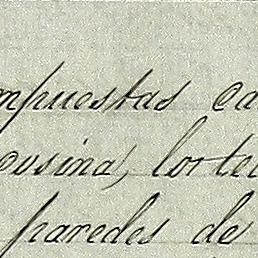 mpuestas ca
cosina, los te
paredes de